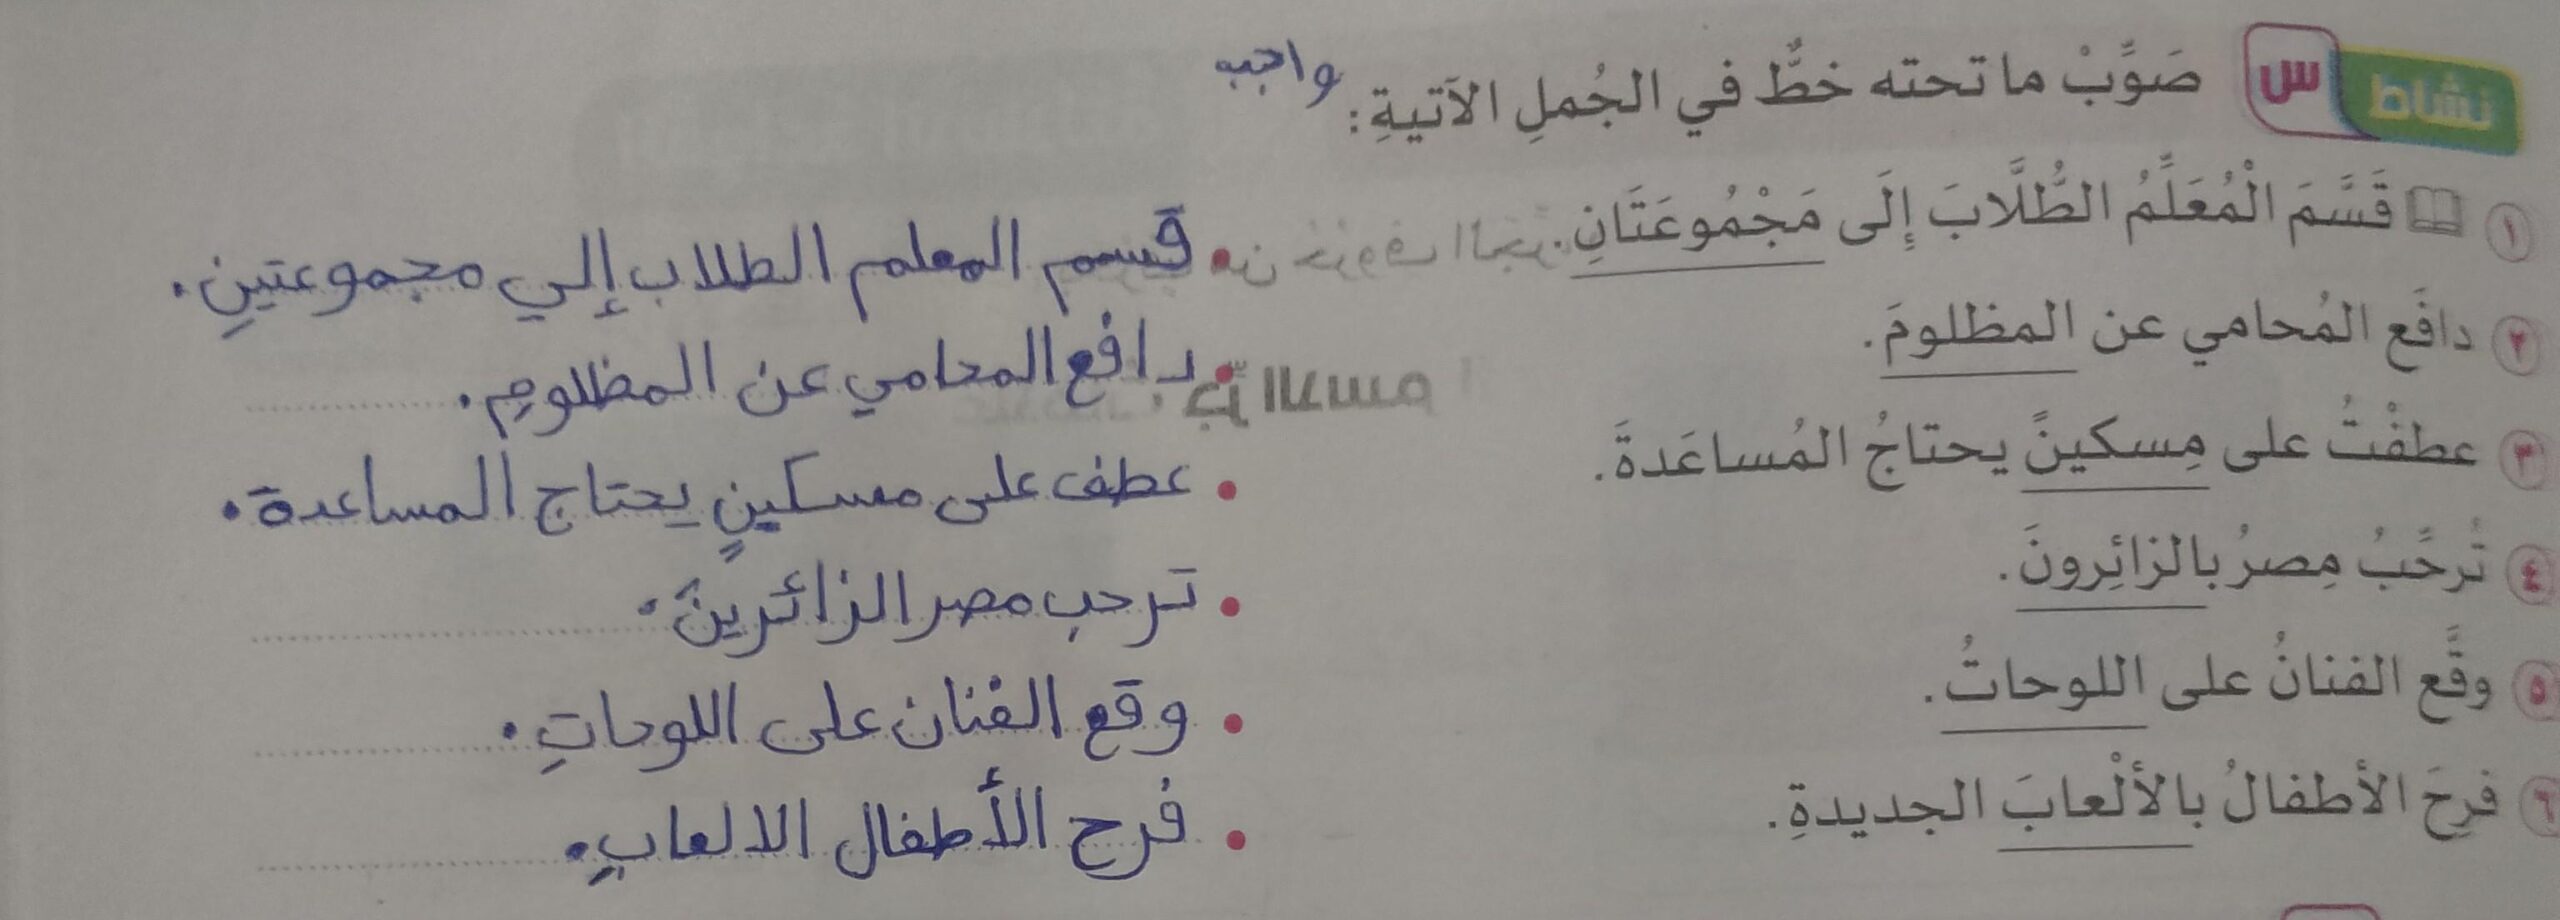 نشاط س صَوِّبْ ما تحته خطٌّ في الجُملِ الآتيةِ: واجب
١ قَسَّمَ الْمُعَلِّمُ الطُّلَّابَ إِلَى مَجْمُوعَتَانِ.
• قسم المعلم الطلاب إلي مجموعتينِ.
٢ دافَع المُحامي عن المظلومَ.
• دافع المحامي عن المظلومِ.
٣ عطفْتُ على مِسكينً يحتاجُ المُساعَدةَ.
• عطف على مسكينٍ يحتاج المساعدة.
٤ تُرحِّبُ مِصرُ بالزائِرونَ.
• ترحب مصر الزائرينَ.
٥ وقَّع الفنانُ على اللوحاتُ.
• وقع الفنان على اللوحاتِ.
٦ فرِحَ الأطفالُ بالألْعابَ الجديدةِ.
• فرح الأطفال الالعابِ.